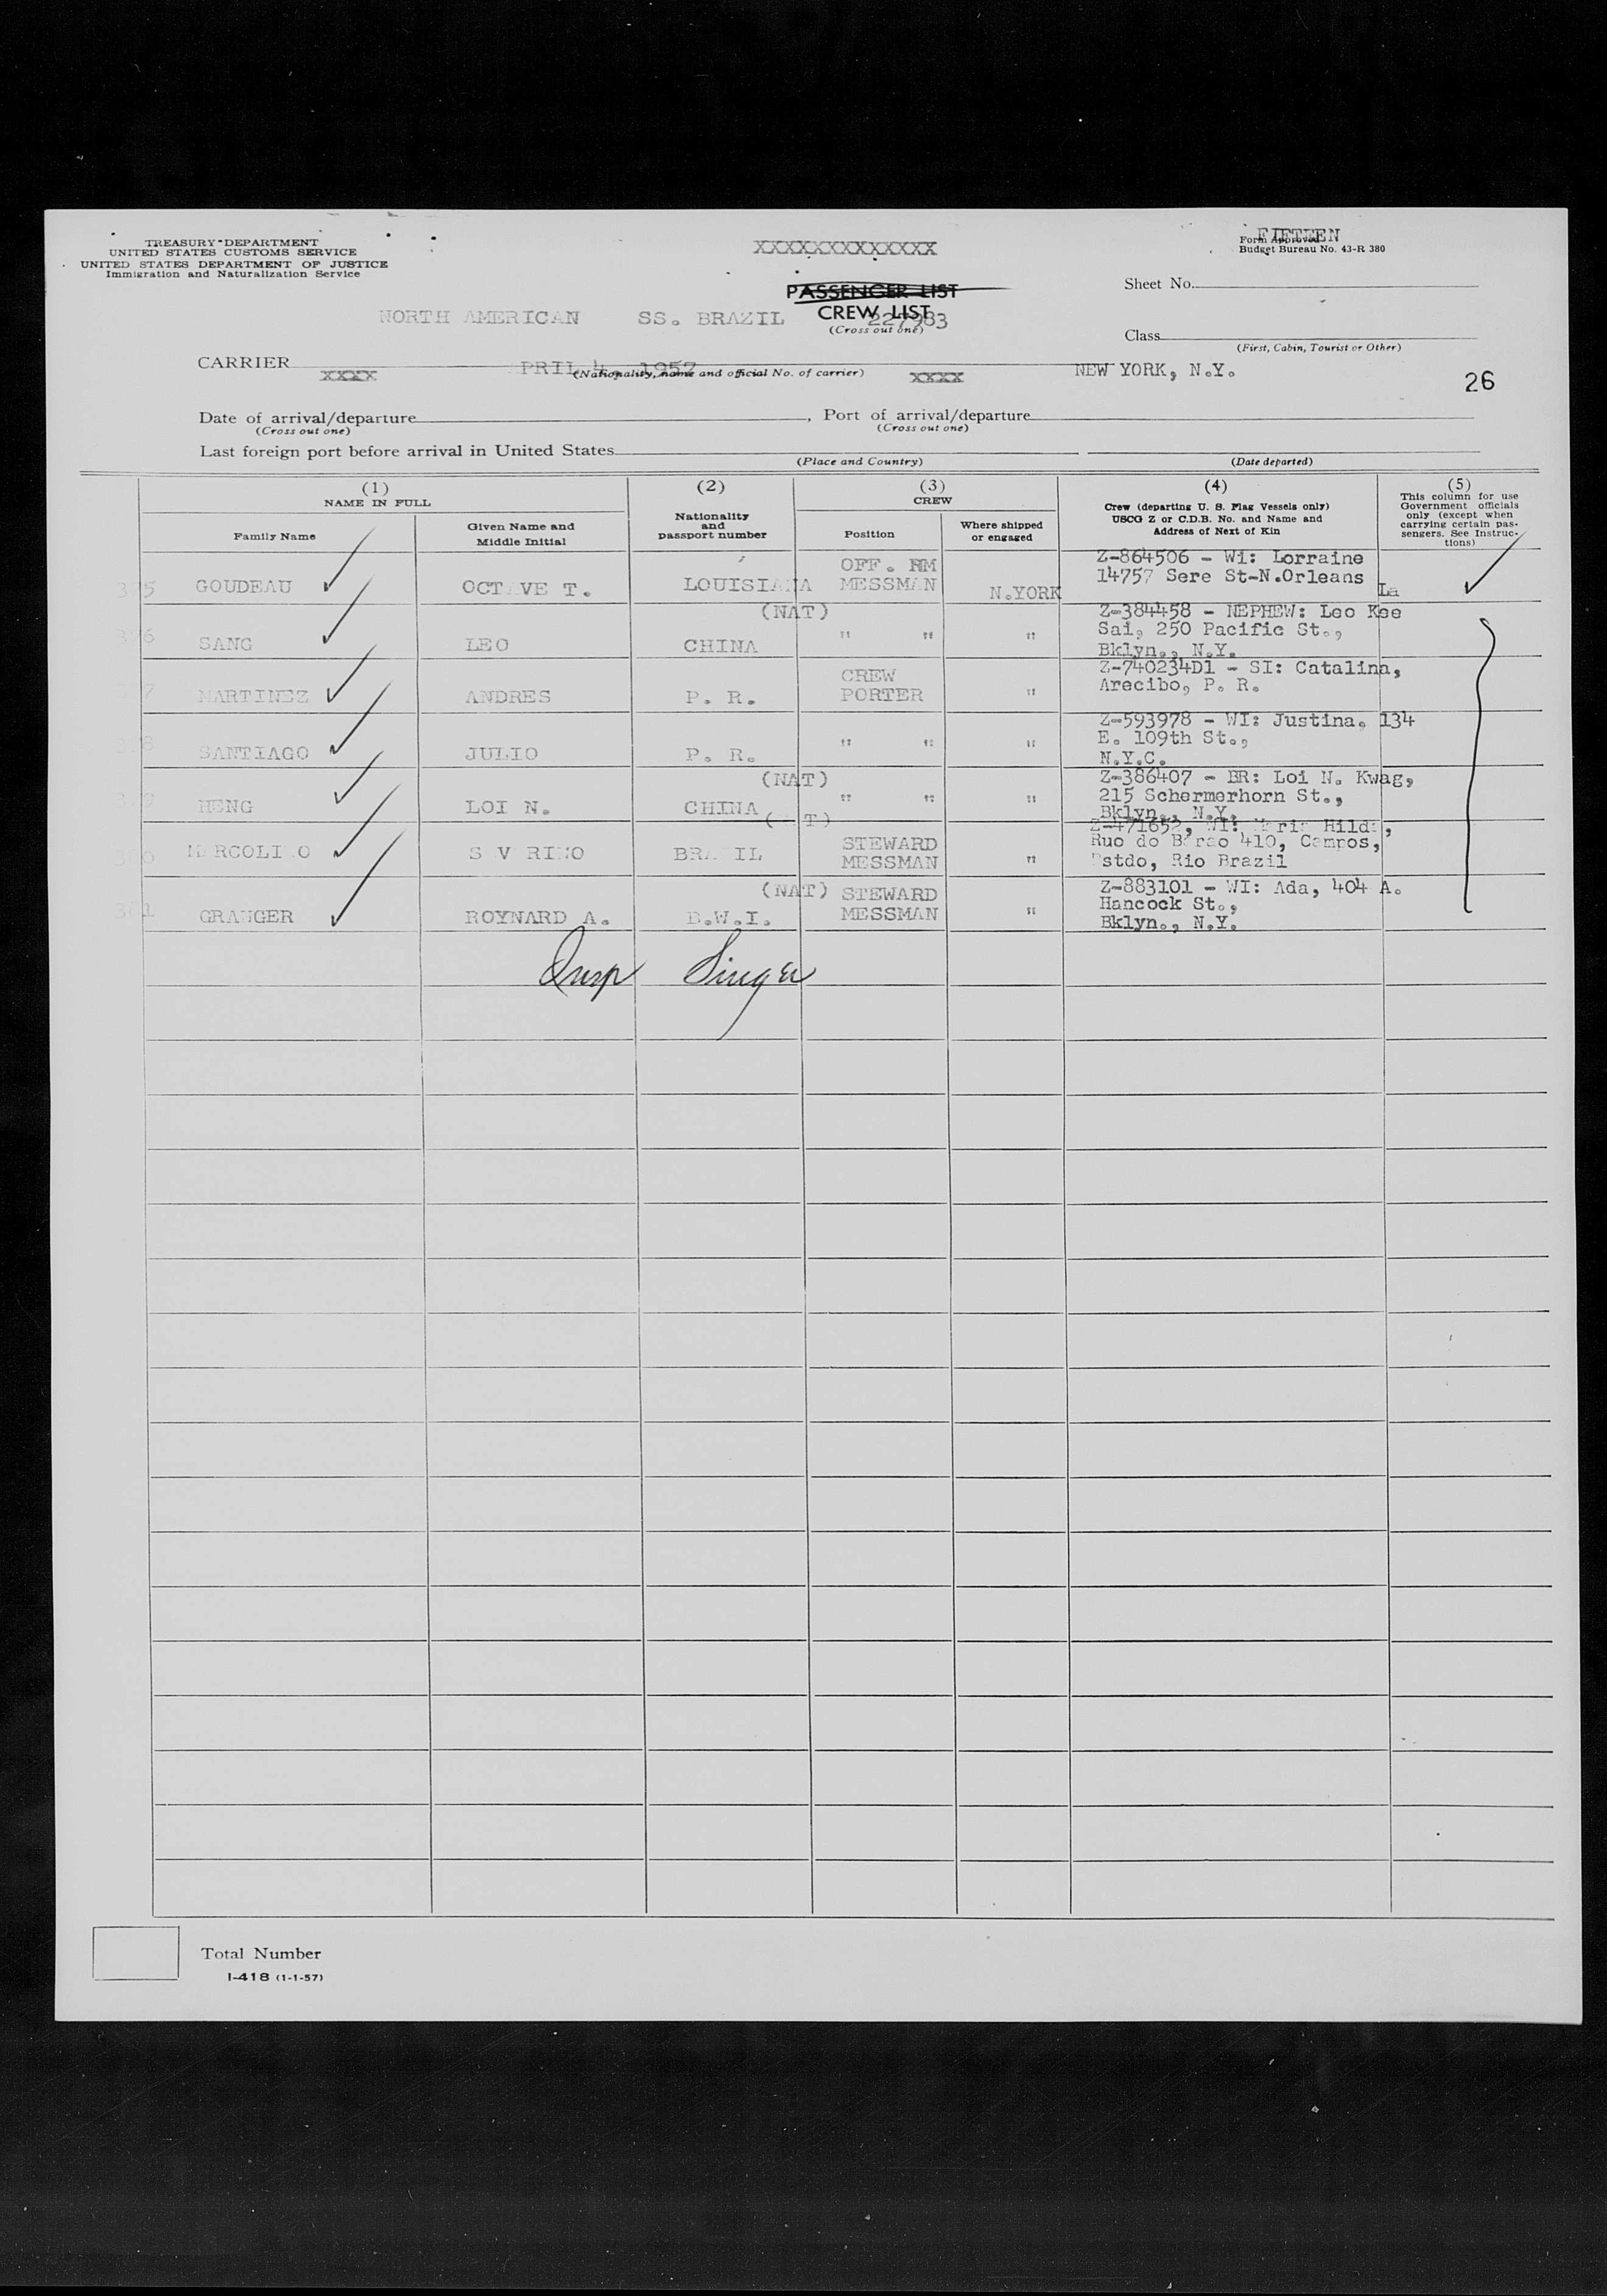 TREASURY DEPARTMENT
UNITED STATES CUSTOMS SERVICE
UNITED STATES DEPARTMENT OF JUSTICE
Immigration and Naturalization Service
XXXXXXXXXXXXXX
FIFTEEN
Form Approved
Budget Bureau No. 43-R 380
PASSENGER LIST
CREW LIST
(Cross out one)
Sheet No.
NORTH AMERICAN SS. BRAZIL 227983
Class
(First, Cabin, Tourist or Other)
CARRIER
(Nationality, name and official No. of carrier)
XXXX PRIL 4, 1957 XXXX NEW YORK, N.Y.
26
Date of arrival/departure , Port of arrival/departure
(Cross out one) (Cross out one)
Last foreign port before arrival in United States
(Place and Country) (Date departed)
(1) NAME IN FULL
Family Name
Given Name and Middle Initial
(2)
Nationality and passport number
(3) CREW
Position
Where shipped or engaged
(4)
Crew (departing U. S. Flag Vessels only)
USCG Z or C.D.B. No. and Name and
Address of Next of Kin
(5)
This column for use
Government officials
only (except when
carrying certain pas-
sengers. See Instruc-
tions)
375 GOUDEAU OCT VE T. LOUISIANA OFF. RM MESSMAN N.YORK Z-864506 - Wi: Lorraine
14757 Sere St-N.Orleans La
376 SANG LEO (NAT) CHINA " " " Z-384458 - NEPHEW: Leo Kee
Sai, 250 Pacific St.,
Bklyn., N.Y.
MARTINEZ ANDRES P. R. CREW PORTER " Z-740234D1 - SI: Catalina,
Arecibo, P. R.
SANTIAGO JULIO P. R. " " " Z-593978 - WI: Justina, 134
E. 109th St.,
N.Y.C.
HENG LOI N. (NAT) CHINA " " " Z-386407 - BR: Loi N. Kwag,
215 Schermerhorn St.,
Bklyn., N.Y.
M RCOLI O S V RINO BRA IL STEWARD MESSMAN " WI: Hild ,
Ruo do B rao 410, Campos,
stdo, Rio Brazil
381 GRANGER ROYNARD A. (NAT) B.W.I. STEWARD MESSMAN " Z-883101 - WI: Ada, 404 A.
Hancock St.,
Bklyn., N.Y.
Insp Singer
Total Number
I-418 (1-1-57)